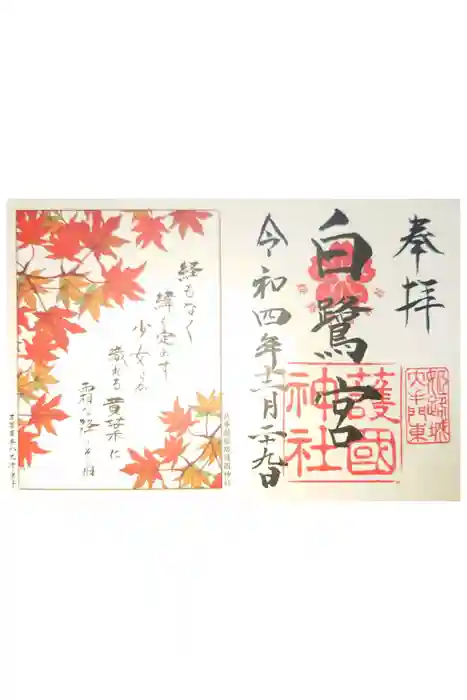 奉拝
姫路城
大手門東
白鷺宮
護國
神社
令和四年十一月二十九日
経もなく
緯も定めず
少女らが
織れる黄葉に
霜な降りそね
兵庫縣姫路護國神社